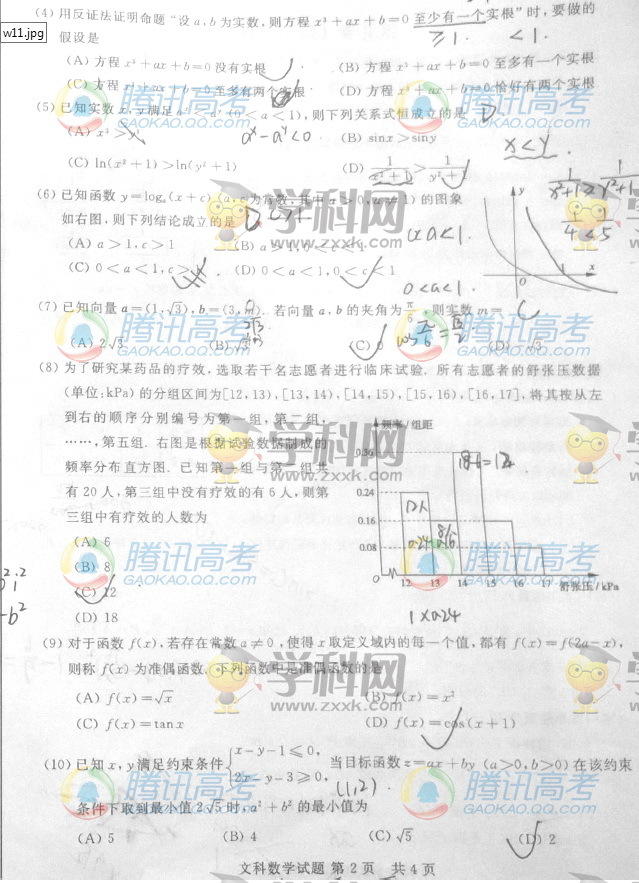 w11.jpg
(4) 用反证法证明命题“设 a,b 为实数,则方程 x³+ax+b=0 至少有一个实根”时,要做的
≥1. <1.
假设是
(A) 方程 x³+ax+b=0 没有实根 (B) 方程 x³+ax+b=0 至多有一个实根
(C) 方程 x³+ax+b=0 至多有两个实根 (D) 方程 x³+ax+b=0 恰好有两个实根
(5) 已知实数 x,y 满足 aˣ<aʸ (0<a<1),则下列关系式恒成立的是 D
(A) x³>y³ aˣ-aʸ<0 (B) sinx>siny
x<y
(C) ln(x²+1)>ln(y²+1) (D) 1/(x²+1)>1/(y²+1)
(6) 已知函数 y=logₐ(x+c) (a,c 为常数,其中 a>0,a≠1) 的图象
如右图,则下列结论成立的是 D
(A) a>1,c>1 (B) a>1,0<c<1
(C) 0<a<1,c>1 (D) 0<a<1,0<c<1
0<a<1.
y
x
O
1/4<1/5
(7) 已知向量 a=(1,√3),b=(3,m). 若向量 a,b 的夹角为 π/6,则实数 m= C
(A) 2√3 (B) √3 (C) 0 (D) -√3
(8) 为了研究某药品的疗效,选取若干名志愿者进行临床试验. 所有志愿者的舒张压数据
(单位:kPa) 的分组区间为[12,13),[13,14),[14,15),[15,16),[16,17],将其按从左
到右的顺序分别编号为第一组,第二组,
……,第五组. 右图是根据试验数据制成的
频率分布直方图. 已知第一组与第二组共
有 20 人,第三组中没有疗效的有 6 人,则第
三组中有疗效的人数为
(A) 6
(B) 8
(C) 12
(D) 18
频率/组距
0.36
0.24
0.16
0.08
0 12 13 14 15 16 17 舒张压/kPa
18-6=12
12人
0.24
1×0.24
(9) 对于函数 f(x),若存在常数 a≠0,使得 x 取定义域内的每一个值,都有 f(x)=f(2a-x),
则称 f(x) 为准偶函数. 下列函数中是准偶函数的是
(A) f(x)=√x (B) f(x)=x²
(C) f(x)=tanx (D) f(x)=cos(x+1)
(10) 已知 x,y 满足约束条件 {x-y-1≤0, 2x-y-3≥0, 当目标函数 z=ax+by (a>0,b>0) 在该约束
(1,2).
条件下取到最小值 2√5 时,a²+b² 的最小值为
(A) 5 (B) 4 (C) √5 (D) 2
文科数学试题 第 2 页 共 4 页
腾讯高考
GAOKAO.QQ.COM
腾讯高考
GAOKAO.QQ.COM
学科网
www.zxxk.com
腾讯高考
GAOKAO.QQ.COM
腾讯高考
GAOKAO.QQ.COM
学科网
www.zxxk.com
腾讯高考
GAOKAO.QQ.COM
腾讯高考
GAOKAO.QQ.COM
学科网
www.zxxk.com
腾讯高考
GAOKAO.QQ.COM
腾讯高考
GAOKAO.QQ.COM